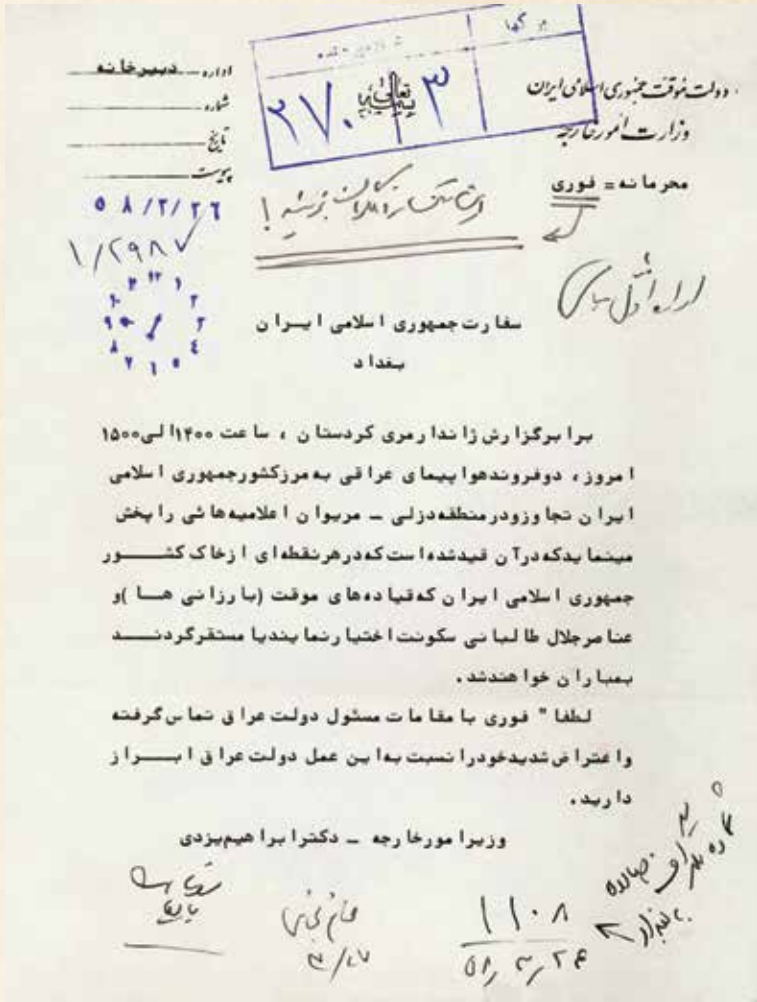 دولت موقت جمهوری اسلامی ایران
وزارت امور خارجه
محرمانه = فوری
بسمه تعالی
برگها
۳
۲۷۰
اداره دبیرخانه
شماره
تاریخ
پیوست
۵۸/۳/۲۶
۱/۲۹۸۷
اداره اول سیاسی
۱۲ ۱ ۲ ۳ ٤ ۵ ٦ ۷ ۸ ۹ ۱۰
سفارت جمهوری اسلامی ایران
بغداد
برابر گزارش ژاندارمری کردستان ، ساعت ۱۴۰۰ الی ۱۵۰۰
امروز ، دو فروند هواپیمای عراقی به مرز کشور جمهوری اسلامی
ایران تجاوز و در منطقه دزلی ـ مریوان اعلامیه هائی را پخش
مینماید که در آن قید شده است که در هر نقطه ای از خاک کشور
جمهوری اسلامی ایران که قیاده های موقت (بارزانی ها) و
عناصر جلال طالبانی سکونت اختیار نمایند یا مستقر گردند
بمباران خواهند شد .
لطفا" فوری با مقامات مسئول دولت عراق تماس گرفته
و اعتراض شدید خود را نسبت به این عمل دولت عراق ابراز
دارید .
وزیر امور خارجه ـ دکتر ابراهیم یزدی
۱۱۰۸
۵۸/۳/۲۶
۳/۲۷